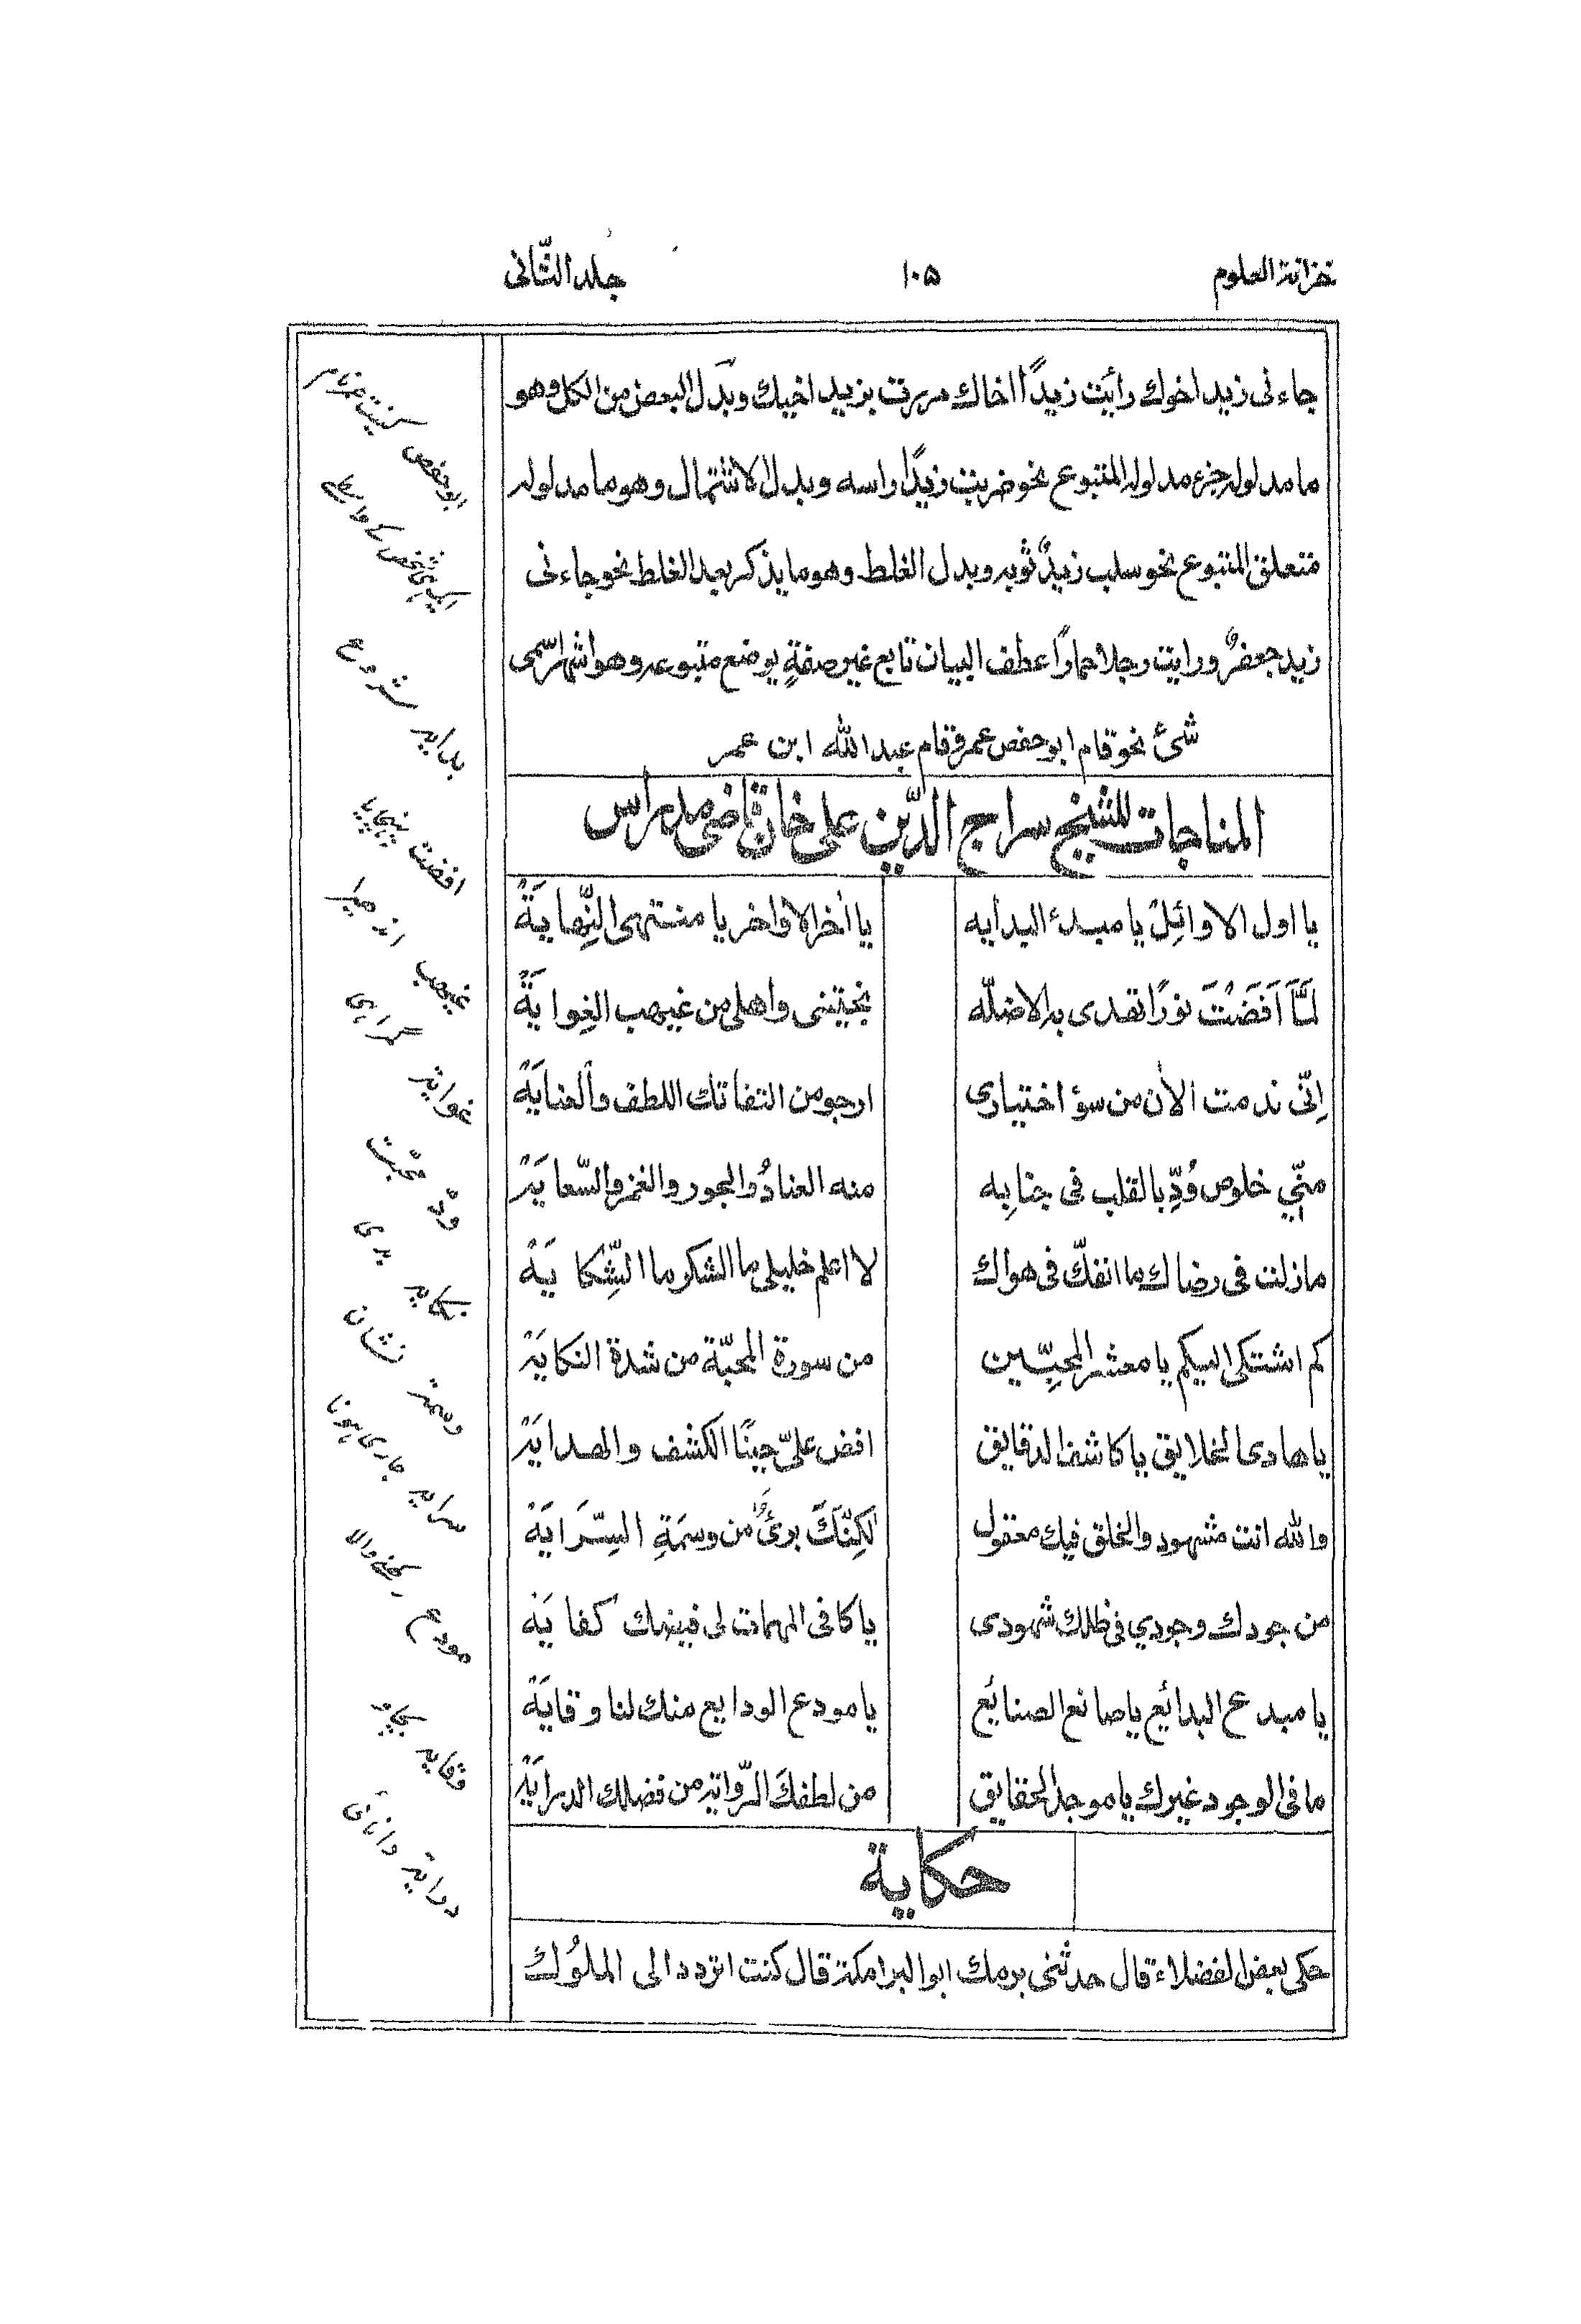 خزانة العلوم
١٠٥
جلد الثّانی
جاءنی زید اخوك رأیت زیدًا اخاك مررت بزید اخیك وبَدل البعض من الكل وهو
ما مدلوله جزء مدلوله المتبوع نحو ضربت زیدًا راسه وبدل الاشتمال وهو ما مدلوله
متعلق المتبوع نحو سلب زیدٌ ثوبه وبدل الغلط وهو ما یذكر بعد الغلط نحو جاءنی
زید جعفرٌ ورایت رجلا حمارًا عطف البیان تابع غیر صفةٍ یوضع متبوعه وهو اشهر اسمی
شئ نحو قام ابو حفص عمر وقام عبد الله ابن عمر
المناجات للشیخ سراج الدّین علی خان قاضی مدراس
یا اول الاوائِلْ یا مبدئ البدایه
یا أخر الاواخر یا منتهی النِّهایَةْ
لمَّا اَفَضْتَ نورًا تهدی به الاضلّه
نجیتنی واهلی من غیهب الغِوایَةْ
اِنّی ندمت الأن من سؤ اختیاری
ارجو من التفاتك اللطف والعنایَةْ
منّی خلوص وُدِّ بالقلب فی جنابِه
منه العنادُ والجور والغمز والسّعایَةْ
مازلت فی رضاك ما انفكّ فی هواك
لا اعلم خلیلی ما الشكر ما الشِّكایَةْ
كم اشتكی الیكم یا معشر المحبِّین
من سورة المحبّة من شدة النكایَةْ
یا هادی الخلایق یا كاشف الدقایق
افض علیّ حینًا الكشف والهدایَةْ
والله انت مشهود والخلق فیك معقول
لكِنَّكَ برئٌ من وسمَةِ السِّرَایَةْ
من جودك وجودی فی ظلك شهودی
یا كافی المهمات لی فیضك كفایَةْ
یا مبدع البدائع یا صانع الصنایع
یا مودع الودایع منك لنا وقایَةْ
ما فی الوجود غیرك یا موجد الحقایق
من لطفكَ الرّوایة من فضلك الدرایَةْ
حكایة
حكی بعض الفضلاء قال حدثنی برمك ابو البرامكة قال كنت اتردد الی الملوُك
ابو حفص
بدایه شروع
افضت پہنچایا
غیهب اندھیرا
غوایة گمراہی
ودّ محبّت
نكایه بدی
وسمة نشان
سرایه جاری ہونا
مودع ركھنے والا
وقایه بچاؤ
درایة دانائی